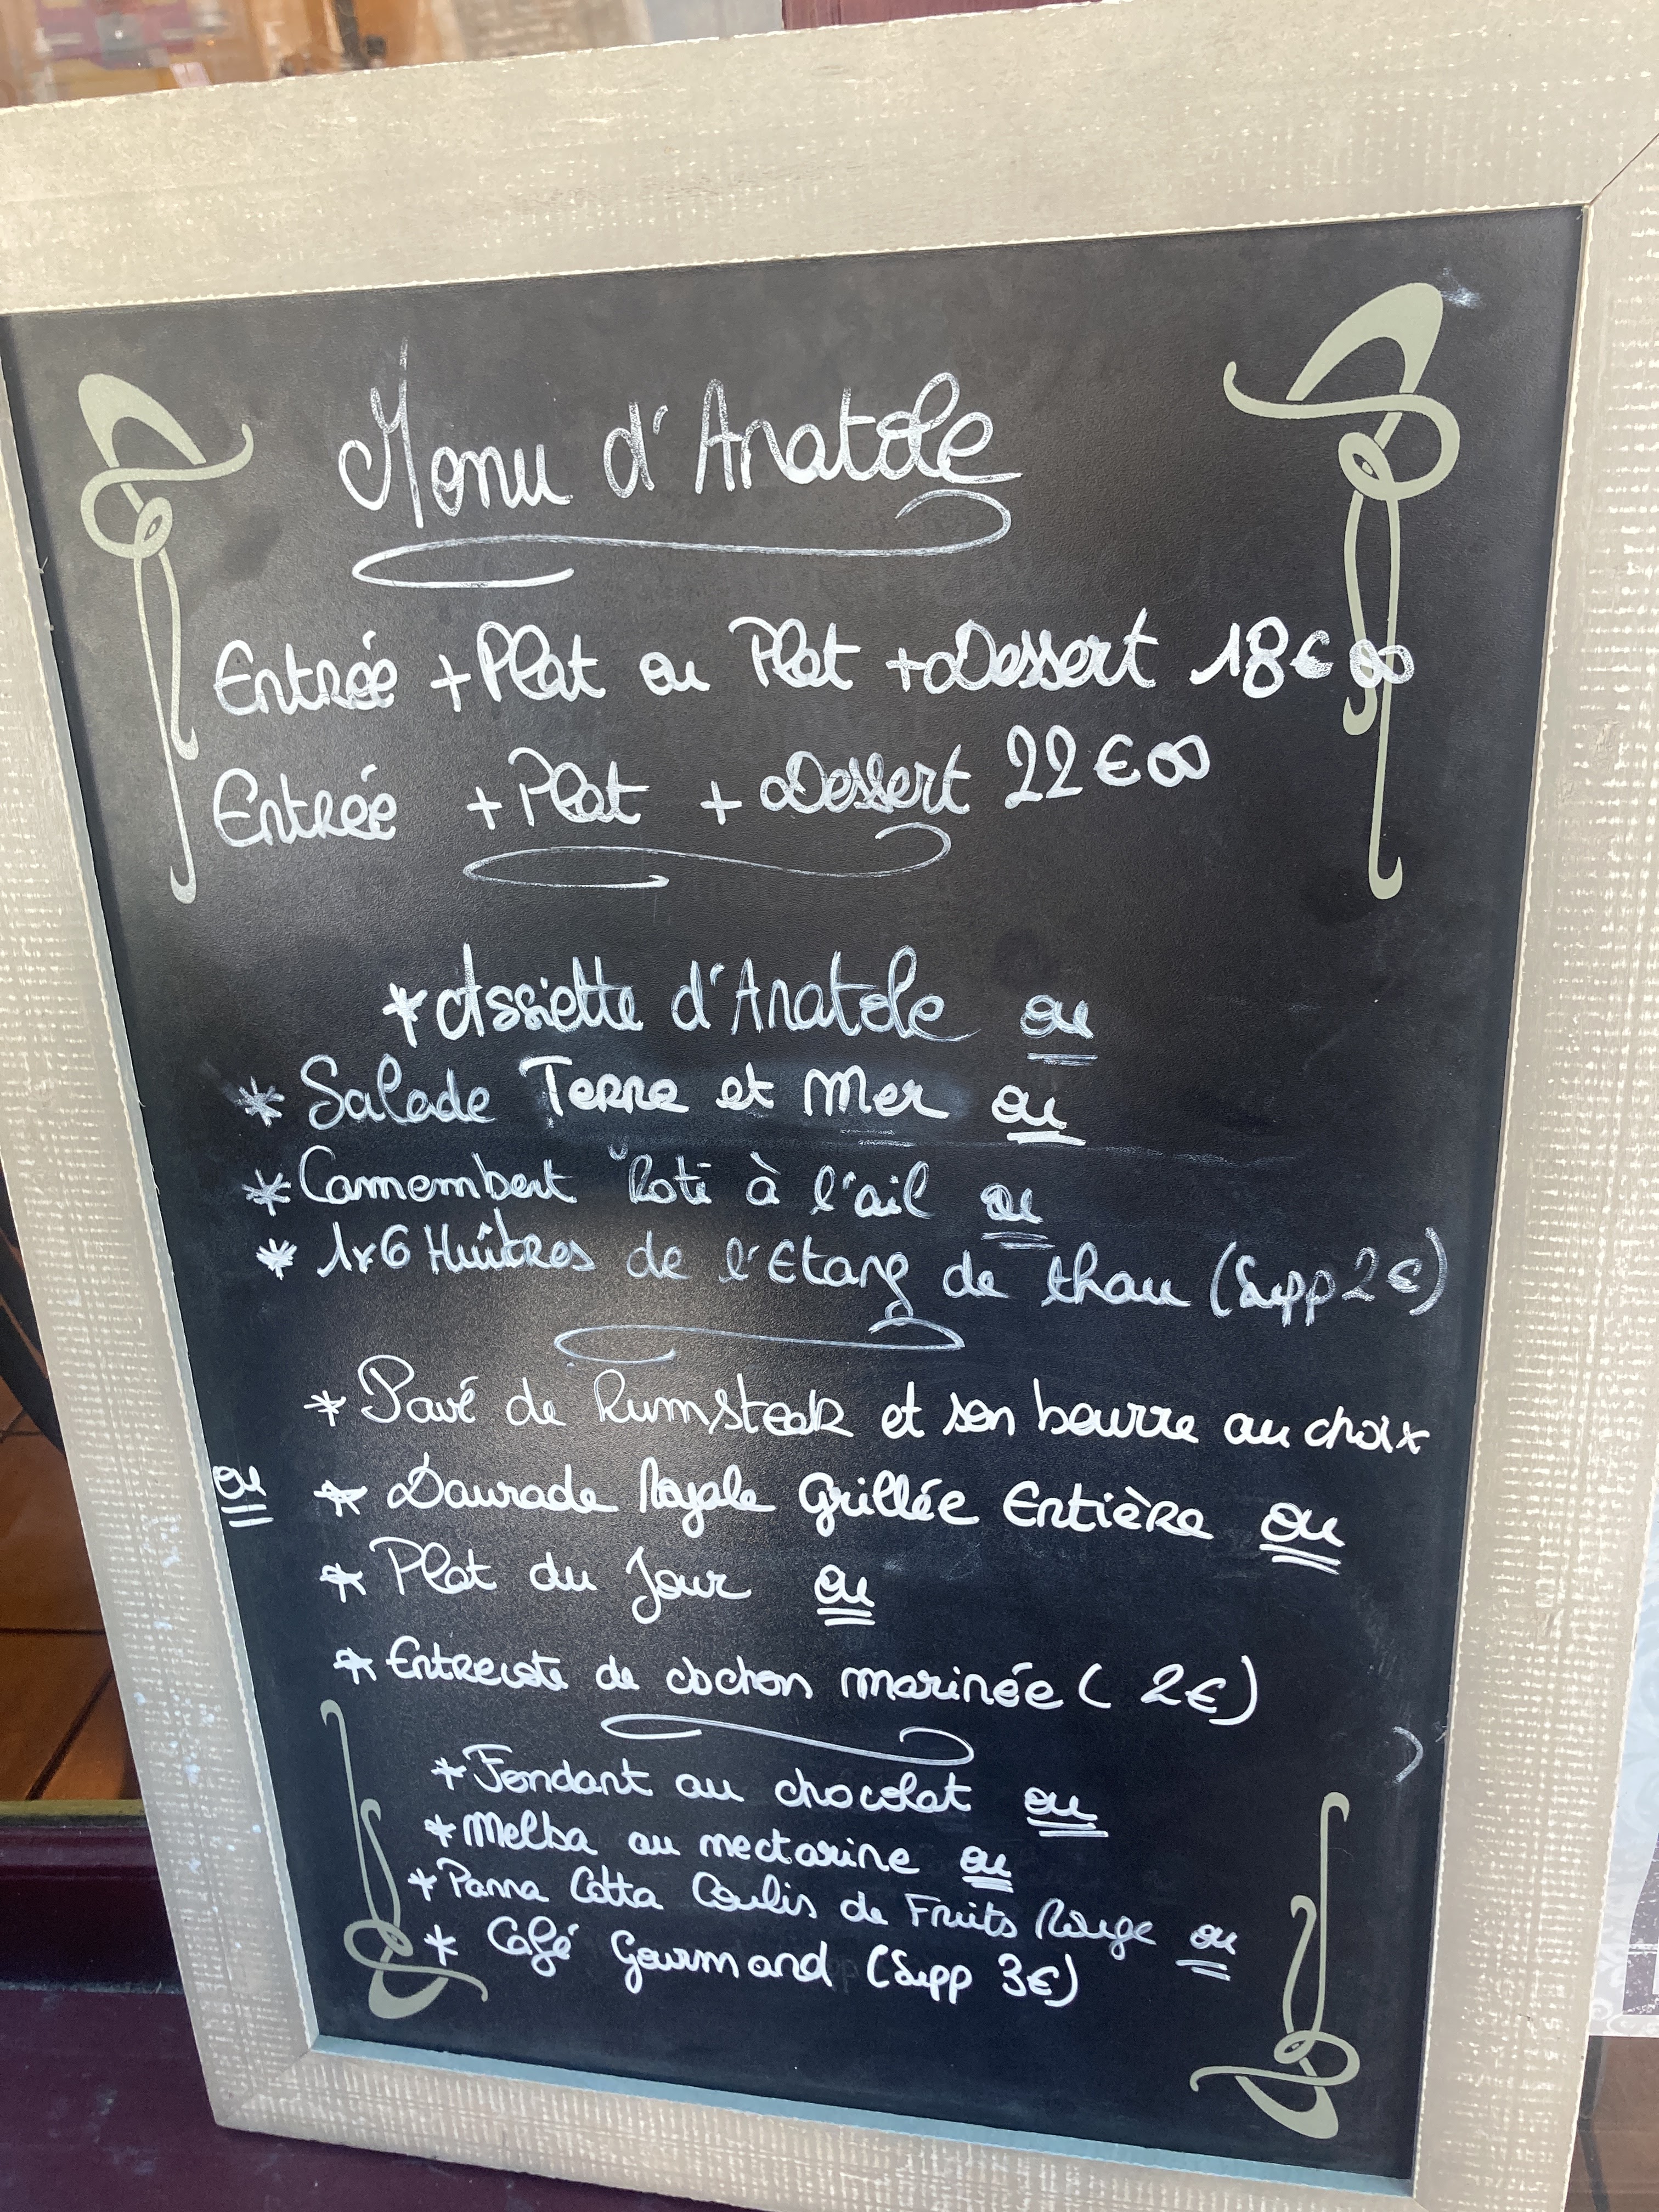 Menu d'Anatole
Entrée + Plat ou Plat + Dessert 18€00
Entrée + Plat + Dessert 22€00
* Assiette d'Anatole ou
* Salade Terre et Mer ou
* Camembert Roti à l'ail ou
* 1x6 Huîtres de l'Etang de thau (Supp 2€)
* Pavé de Rumsteak et son beurre au choix
ou * Daurade Royale Grillée Entière ou
* Plat du Jour ou
* Entrecote de cochon marinée ( 2€)
* Fondant au chocolat ou
* Melba au nectarine ou
* Panna Cotta Coulis de Fruits Rouge ou
* Café Gourmand (Supp 3€)